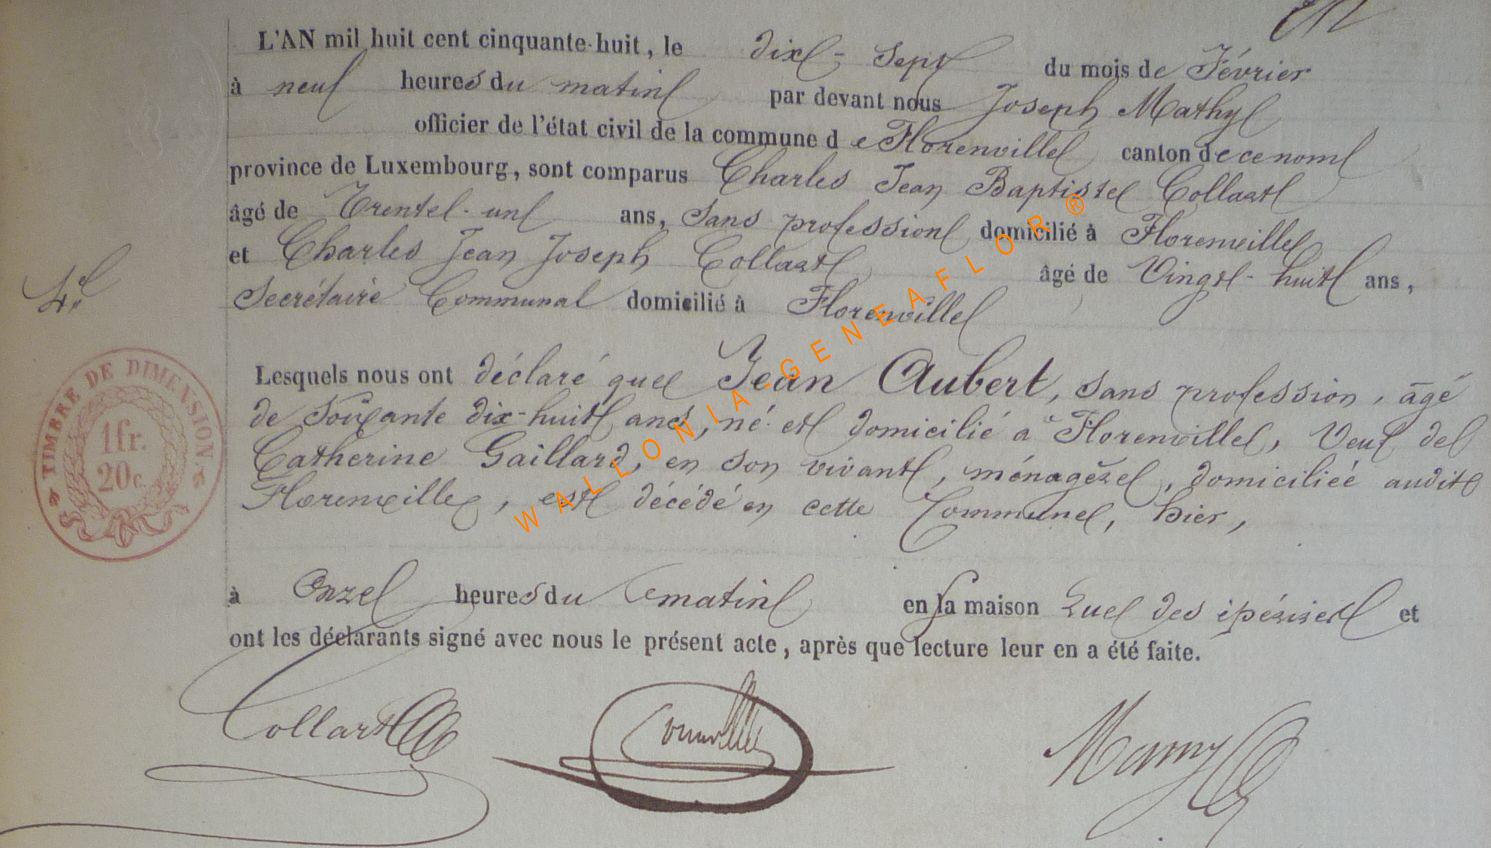 L'AN mil huit cent cinquante-huit, le dix-sept du mois de Février
à neuf heures du matin par devant nous Joseph Mathy
officier de l'état civil de la commune de Florenville canton de ce nom
province de Luxembourg, sont comparus Charles Jean Baptiste Collart
âgé de Trente-un ans, sans profession domicilié à Florenville
et Charles Jean Joseph Collart âgé de Vingt-huit ans,
4e
Secrétaire Communal domicilié à Florenville
Lesquels nous ont déclaré que Jean Aubert, sans profession, âgé
de soixante dix-huit ans, né et domicilié à Florenville, Veuf de
Catherine Gaillard, en son vivant, ménagère, domiciliée audit
Florenville, est décédé en cette Commune, hier,
TIMBRE DE DIMENSION
1 fr.
20 c.
à Onze heures du matin en sa maison rue des épiziers et
ont les déclarants signé avec nous le présent acte, après que lecture leur en a été faite.
Collart
WALLONIA-GENEAFLOR®